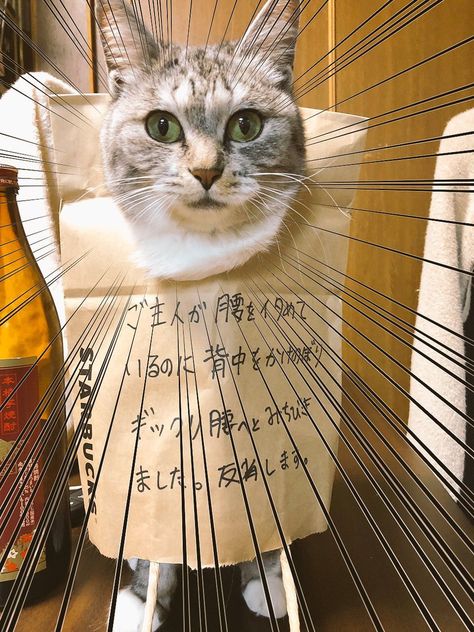 ご主人が腰をイタめて
いるのに背中をかけのぼり
ギックリ腰へとみちびき
ました。反省します。
STARBUCKS
本格焼酎